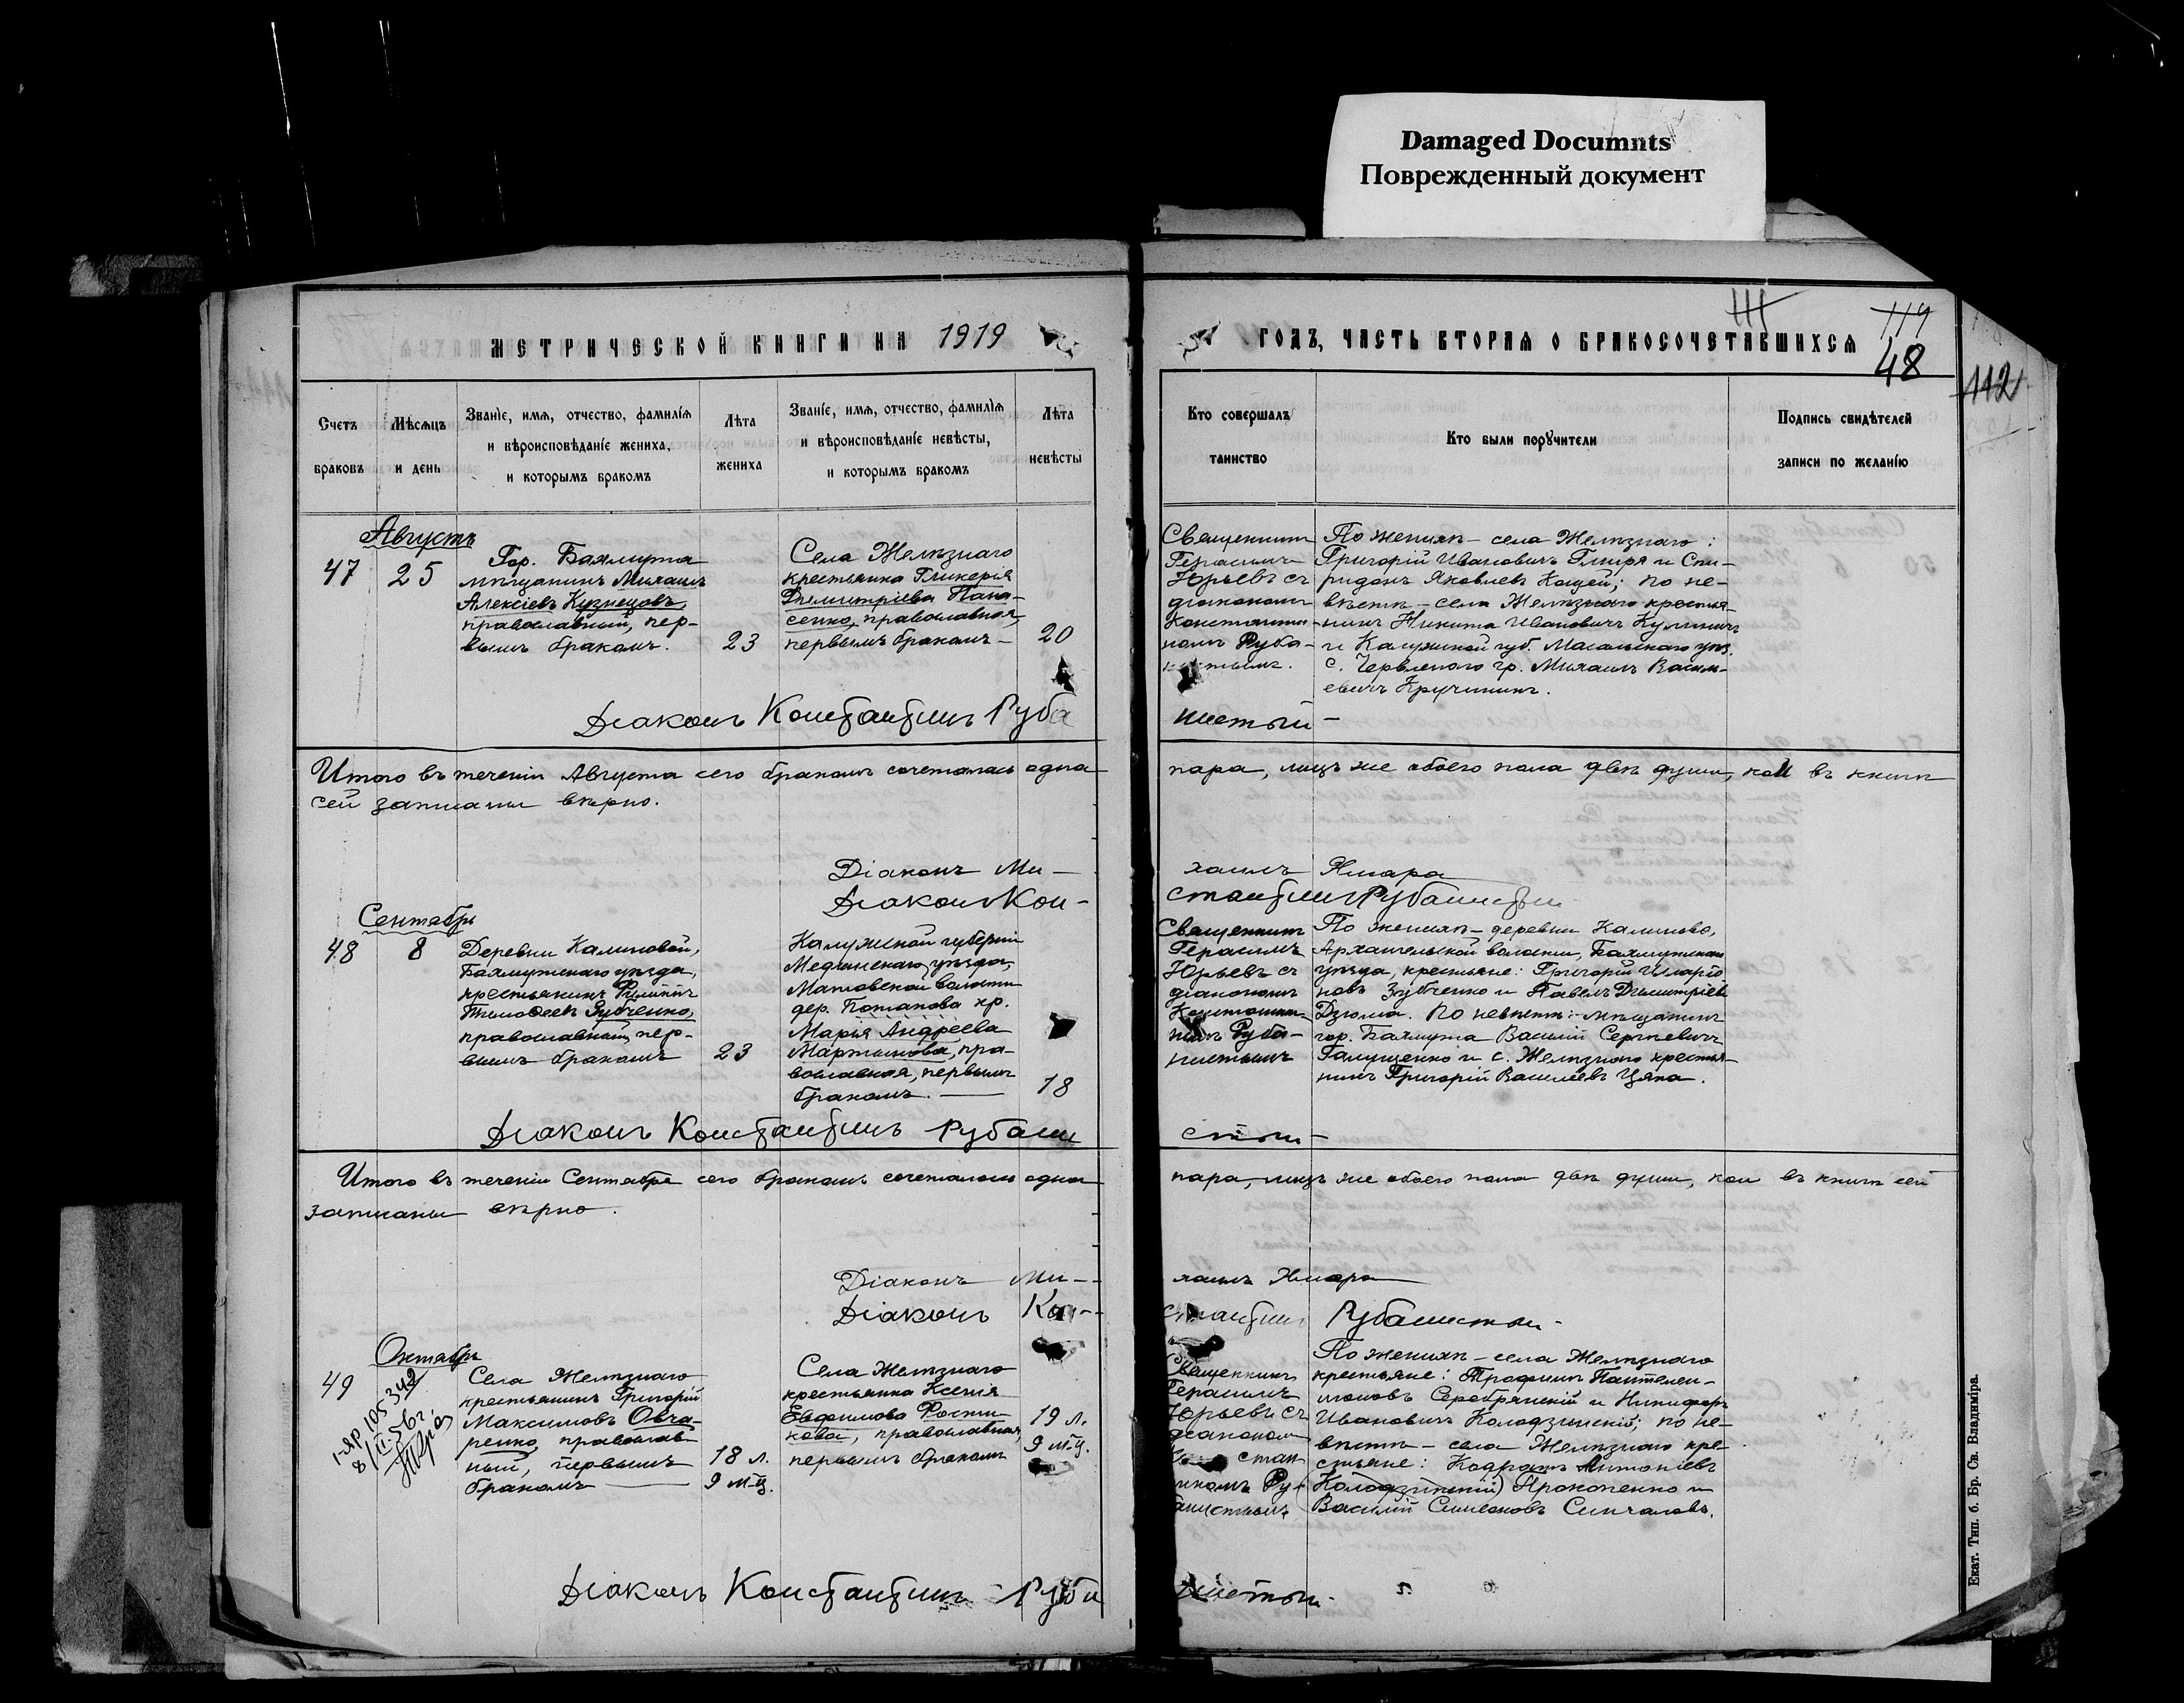 Damaged Documnts
Поврежденный документ
МЕТРИЧЕСКОЙ КНИГИ НА 1919
ГОДЪ, ЧАСТЬ ВТОРАЯ О БРАКОСОЧЕТАВШИХСЯ
119
48
112
Счетъ браковъ
Мѣсяцъ и день
Званіе, имя, отчество, фамилія
и вѣроисповѣданіе жениха,
и которымъ бракомъ
Лѣта жениха
Званіе, имя, отчество, фамилія
и вѣроисповѣданіе невѣсты,
и которымъ бракомъ
Лѣта невѣсты
Кто совершалъ таинство
Кто были поручители
Подпись свидѣтелей
записи по желанію
Августъ
47 25
Гор. Бахмута
мѣщанинъ Михаилъ
Алексіевъ Кузнецовъ,
православный, пер-
вымъ бракомъ.
23
Села Желѣзнаго
крестьянка Гликерія
Димитріева Пана-
сенко, православная,
первымъ бракомъ –
20
Священникъ
Герасимъ
Юрьевъ съ
діакономъ
Константи-
номъ Руба-
По женихѣ – села Желѣзнаго:
Григорій Ивановичъ Гмиря и Спи-
ридонъ Яковлевъ Кащей; по не-
вѣстѣ – села Желѣзнаго крестья-
нинъ Никита Ивановичъ Куликъ
и Калужской губ. Масальскаго уѣз.
с. Червленого гр. Михаилъ Васил-
евичъ Кручининъ.
Діаконъ Константинъ Руба
нистый –
Итого въ теченіи Августа сего бракомъ сочеталась одна
пара, лицъ же обоего пола двѣ души, кои въ книгѣ
сей записаны вѣрно.
Діаконъ Ми-
хаилъ Хмара
Діаконъ Кон-
стантинъ Рубанистый
Сентябрь
48 8
Деревни Калиновой,
Бахмутскаго уѣзда,
крестьянинъ Филиппъ
Тимофеевъ Зубченко,
православный, пер-
вымъ бракомъ
23
Калужской губерніи
Медынскаго уѣзда,
Матовской волости
дер. Потапова кр.
Марія Андреева
Мартынова, пра-
вославная, первымъ
бракомъ. –
18
Священникъ
Герасимъ
Юрьевъ съ
діакономъ
Константи-
номъ Руба-
нистымъ
По женихѣ – деревни Калиново,
Архангельской волости, Бахмутскаго
уѣзда, крестьяне: Григорій Иларіо
новъ Зубченко и Павелъ Димитріевъ
Дзюма. По невѣстѣ: – мѣщанинъ
гор. Бахмута Василій Сергѣевичъ
Галущенко и с. Желѣзнаго крестья-
нинъ Григорій Василіевъ Цяпа.
Діаконъ Константинъ Рубани
стый –
Итого въ теченіи Сентября сего бракомъ сочеталась одна
пара, лицъ же обоего пола двѣ души, кои въ книгѣ сей
записаны вѣрно.
Діаконъ Ми-
хаилъ Хмара
Діаконъ Кон-
стантинъ Рубанистый –
Октябрь
49
1-ЯР 105342
8/II-56г.
Села Желѣзнаго
крестьянинъ Григорій
Максимовъ Овча-
ренко, православ
ный, первымъ
бракомъ –
18 л.
9 м-ц.
Села Желѣзнаго
крестьянка Ксенія
Евфимова Рости-
кова, православная,
первымъ бракомъ
19 л.
9 м-ц.
Священникъ
Герасимъ
Юрьевъ съ
діакономъ
стан
иномъ Ру-
По женихѣ – села Желѣзнаго
крестьяне: Трофимъ Пантелеи-
моновъ Серебрянскій и Никифоръ
Ивановичъ Колодзинскій; по не-
вѣстѣ – села Желѣзнаго кре-
стьяне: Кодратъ Антоніевъ
(Колодзинскій) Прокопенко и
Василій Симеоновъ Сипчаловъ.
Діаконъ Константинъ Руба
нистый –
Екат. Тип. б. Бр. Св. Владиміра.